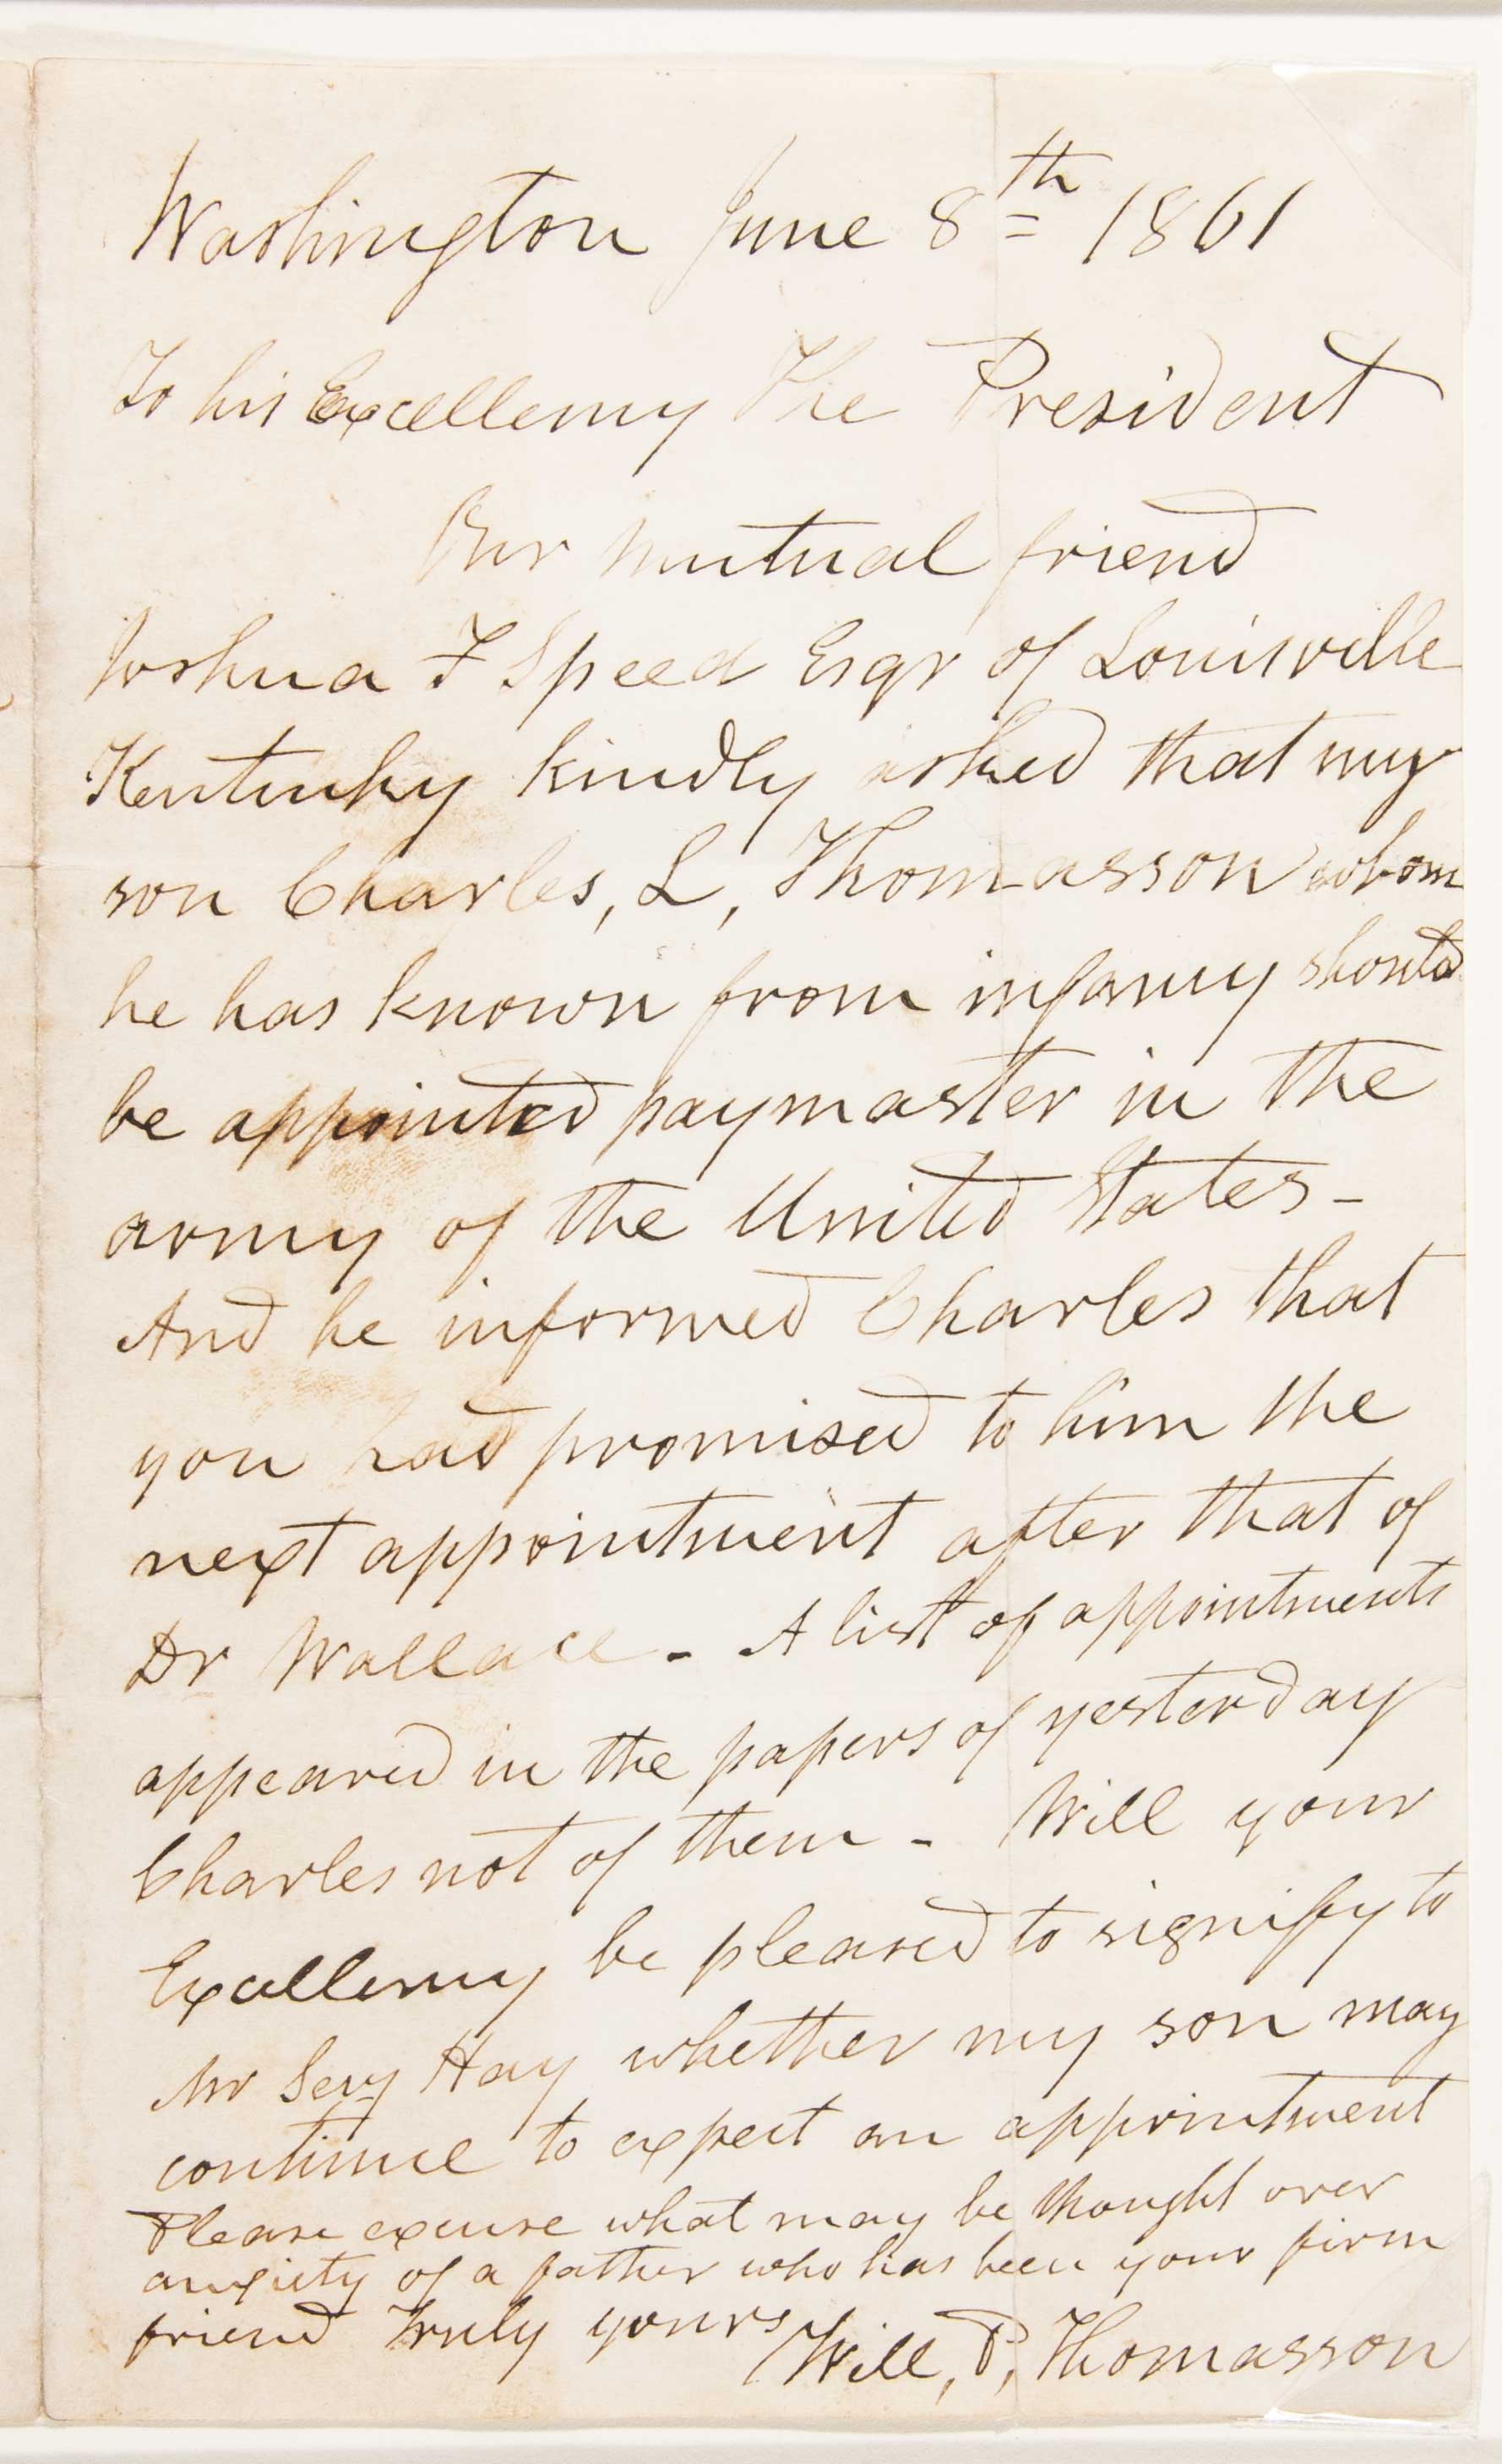 Washington June 8th 1861
To his Excellency The President
Our mutual friend
Joshua F Speed Esqr of Louisville
Kentucky kindly asked that my
son Charles, L, Thomasson whom
he has known from infancy should
be appointed paymaster in the
army of the United States -
And he informed Charles that
you had promised to him the
next appointment after that of
Dr Wallace - A list of appointments
appeared in the papers of yesterday
Charles not of them - Will your
Excellency be pleased to signify to
Mr Secy Hay whether my son may
continue to expect an appointment
Please excuse what may be thought over
anxiety of a father who has been your firm
friend Truly yours
Will, P, Thomasson